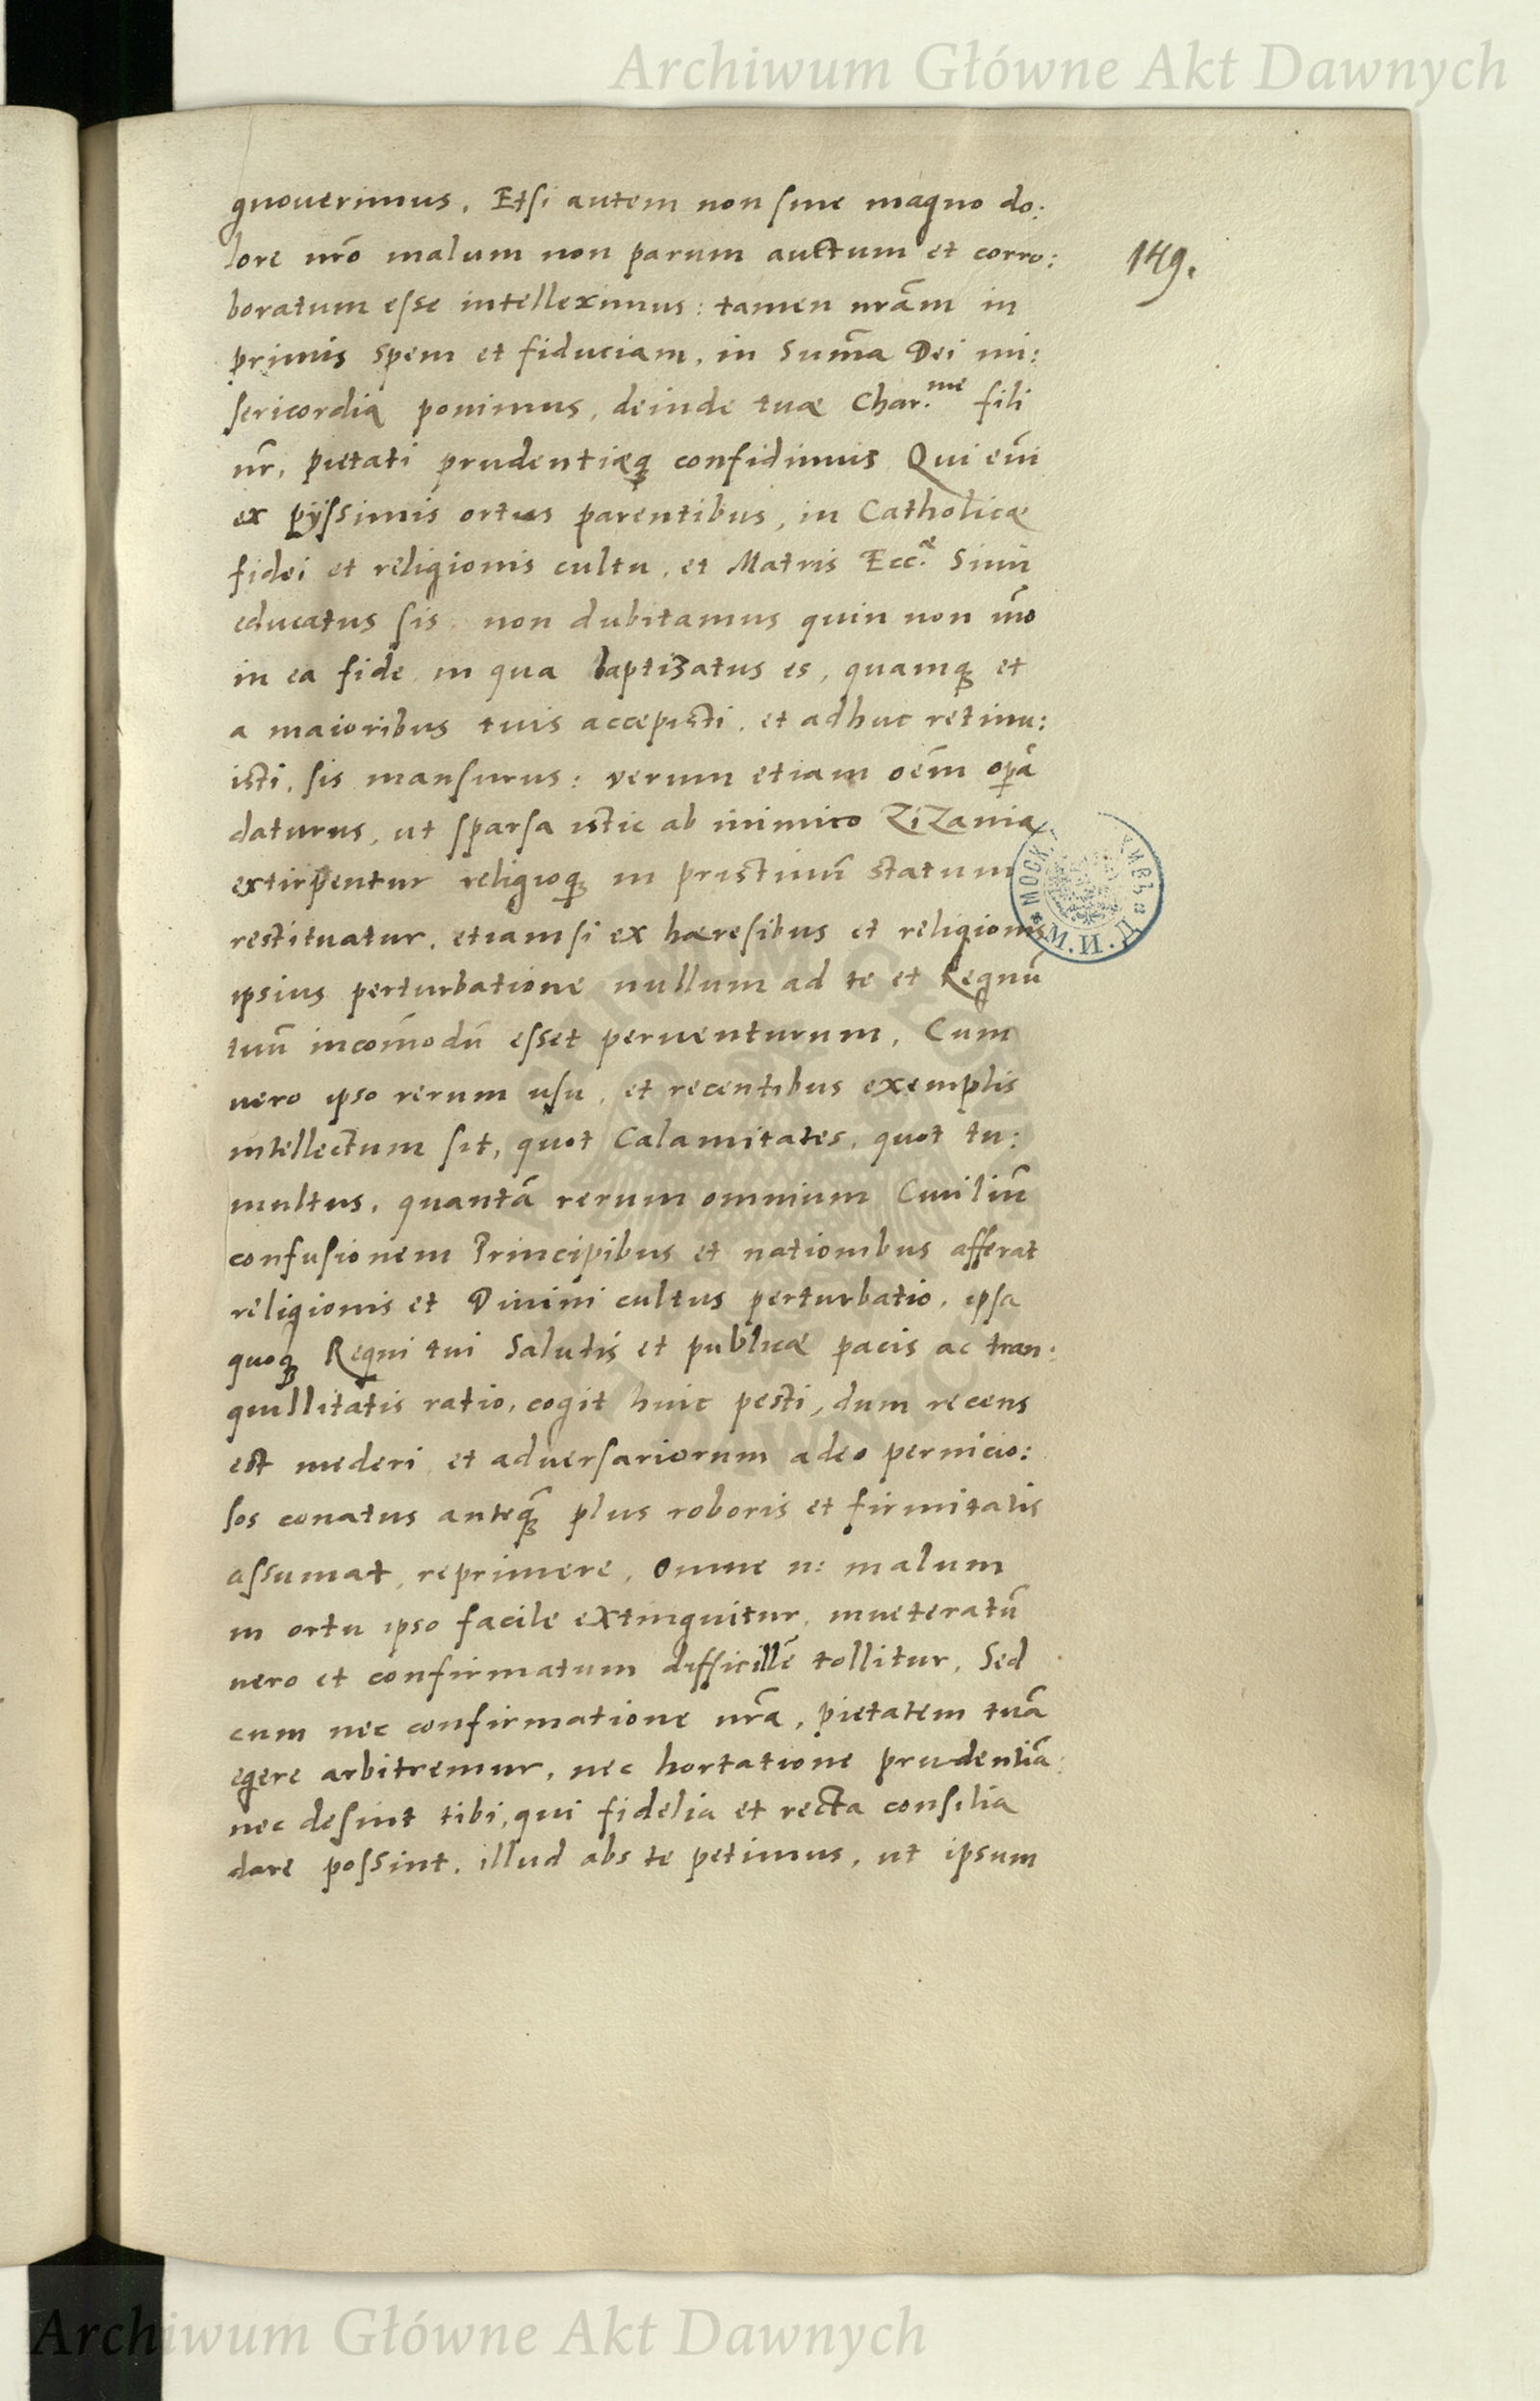 Archiwum Główne Akt Dawnych
gnouerimus. Etsi autem non sine magno do:
lore nr̃o malum non parum auctum et corro:
149.
boratum esse intelleximus: tamen nrãm in
primis spem et fiduciam, in Sum̃a Dei mi:
sericordia ponimus, deinde tuæ Char.me fili
nr̃, pietati prudentiæq confidimus Qui em̃
ex pijssimis ortus parentibus, in Catholicæ
fidei et religionis cultu, et Matris Ecc.æ Sinu
educatus sis, non dubitamus quin non mõ
in ea fide in qua baptizatus es, quamq et
a maioribus tuis accepisti, et adhuc retinu:
isti, sis mansurus: verum etiam oẽm operã
daturus, ut sparsa istic ab inimico ZiZania
extirpentur religioq in pristinũ statum
restituatur, etiamsi ex hæresibus et religionis
ipsius perturbatione nullum ad te et Regnũ
tuũ incom̃odũ esset peruenturum, Cum
uero ipso rerum usu, et recentibus exemplis
intellectum sit, quot Calamitates, quot tu:
multus, quantã rerum omnium Ciuiliũ
confusionem Principibus et nationibus afferat
religionis et Diuini cultus perturbatio, ipsa
quoq Regni tui Salutis et publicæ pacis ac tran:
quillitatis ratio, cogit huic pesti, dum recens
est mederi, et aduersariorum adeo pernicio:
sos conatus anteq̃ plus roboris et firmitatis
assumat, reprimere, Omne n: malum
in ortu ipso facile extinguitur, inueteratũ
uero et confirmatum difficillẽ tollitur, Sed
cum nec confirmatione nrã, pietatem tuã
egere arbitremur, nec hortatione prudentiã
nec desint tibi, qui fidelia et recta consilia
dare possint, illud abs te petimus, ut ipsum
М.И.Д.
Archiwum Główne Akt Dawnych